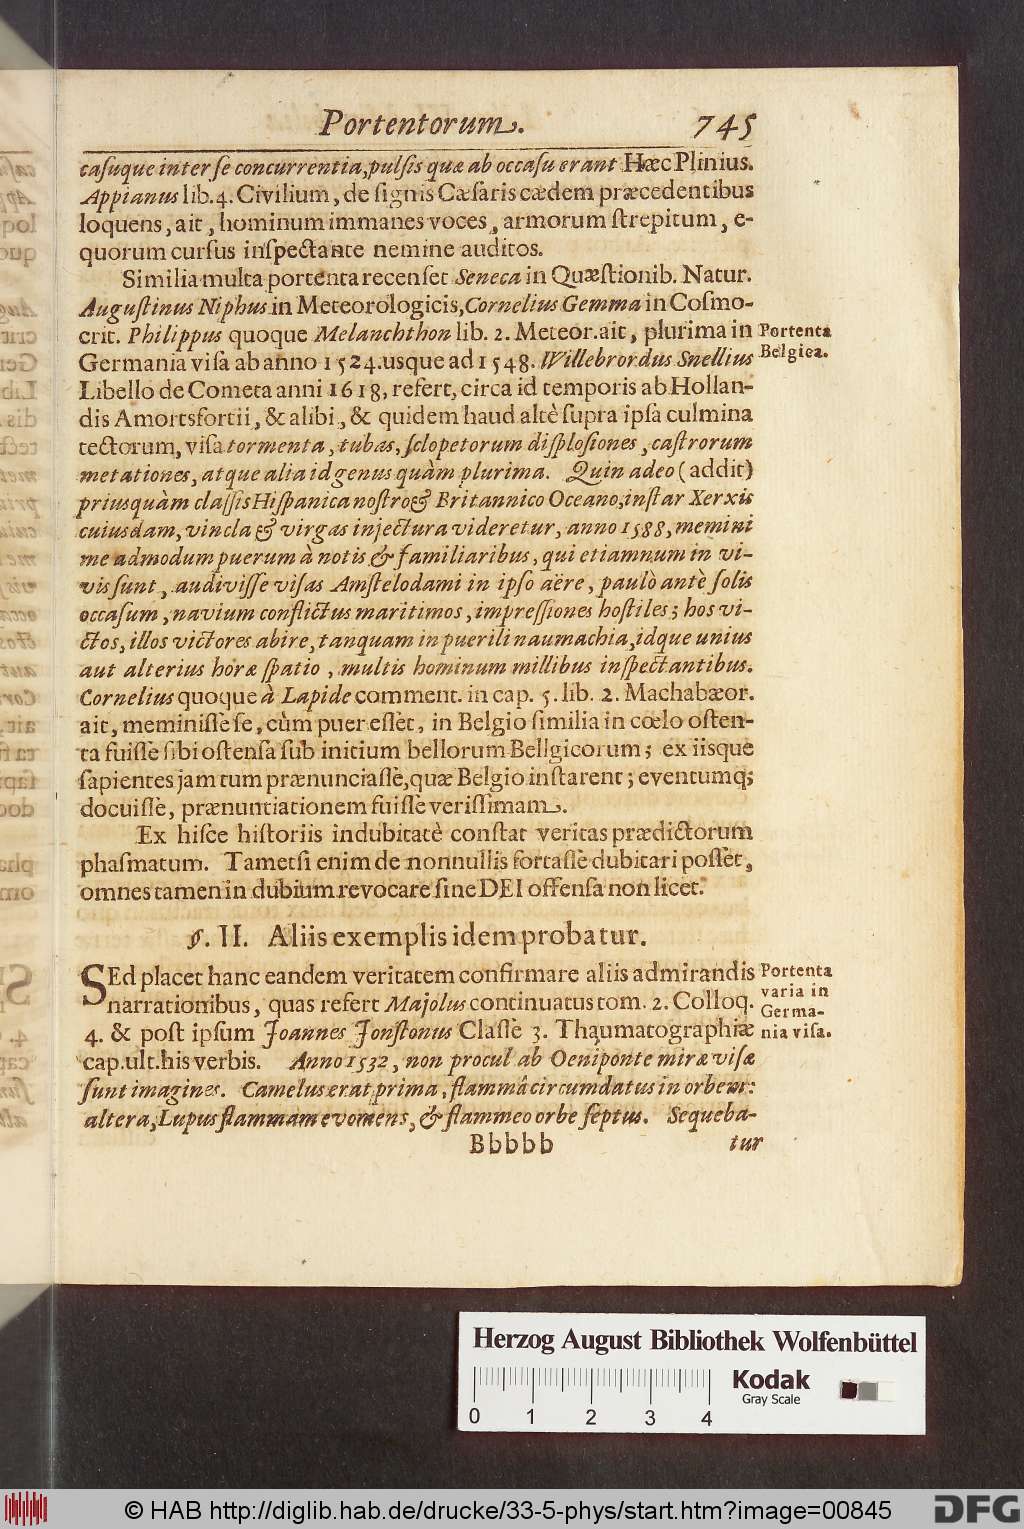 Portentorum. 745
casuque inter se concurrentia, pulsis quæ ab occasu erant Hæc Plinius.
Appianus lib. 4. Civilium, de signis Cæsaris cædem præcedentibus
loquens, ait, hominum immanes voces, armorum strepitum, e-
quorum cursus inspectante nemine auditos.
Similia multa portenta recenset Seneca in Quæstionib. Natur.
Augustinus Niphus in Meteorologicis, Cornelius Gemma in Cosmo-
crit. Philippus quoque Melanchthon lib. 2. Meteor. ait, plurima in
Germania visa ab anno 1524. usque ad 1548. Willebrordus Snellius
Portenta
Belgica.
Libello de Cometa anni 1618, refert, circa id temporis ab Hollan-
dis Amortsfortii, & alibi, & quidem haud altè supra ipsà culmina
tectorum, visa tormenta, tubas, sclopetorum displosiones, castrorum
metationes, atque alia id genus quàm plurima. Quin adeo (addit)
priusquàm classis Hispanica nostro & Britannico Oceano, instar Xerxis
cuiusdam, vincla & virgas injectura videretur, anno 1588, memini
me admodum puerum à notis & familiaribus, qui etiamnum in vi-
vis sunt, audivisse visas Amstelodami in ipso aëre, paulò antè solis
occasum, navium conflictus maritimos, impressiones hostiles; hos vi-
ctos, illos victores abire, tanquam in puerili naumachia, idque unius
aut alterius horæ spatio, multis hominum millibus inspectantibus.
Cornelius quoque à Lapide comment. in cap. 5. lib. 2. Machabæor.
ait, meminisse se, cùm puer esset, in Belgio similia in cœlo osten-
ta fuisse sibi ostensa sub initium bellorum Bellgicorum; ex iisque
sapientes jam tum prænunciasse, quæ Belgio instarent; eventumq;
docuisse, prænuntiationem fuisse verissimam.
Ex hisce historiis indubitatè constat veritas prædictorum
phasmatum. Tametsi enim de nonnullis fortasse dubitari posset,
omnes tamen in dubium revocare sine DEI offensa non licet.
§. II. Aliis exemplis idem probatur.
SEd placet hanc eandem veritatem confirmare aliis admirandis
narrationibus, quas refert Majolus continuatus tom. 2. Colloq.
4. & post ipsum Joannes Jonstonus Classe 3. Thaumatographiæ
Portenta
varia in
Germa-
nia visa.
cap. ult. his verbis. Anno 1532, non procul ab Oeniponte miræ visæ
sunt imagines. Camelus erat prima, flammâ circumdatus in orbem:
altera, Lupus flammam evomens, & flammeo orbe septus. Sequeba-
Bbbbb tur
Herzog August Bibliothek Wolfenbüttel
0 1 2 3 4
Kodak
Gray Scale
© HAB http://diglib.hab.de/drucke/33-5-phys/start.htm?image=00845
DFG